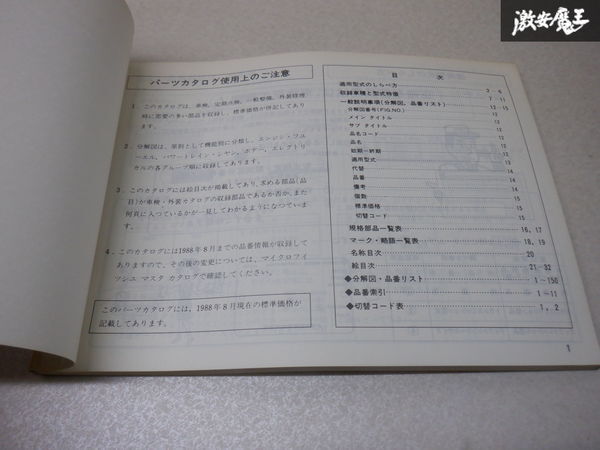 激安魔王
パーツカタログ使用上のご注意
1．このカタログは、車検、定期点検、一般整備、外装修理
時に需要の多い部品を収録し、標準価格が併記してあり
ます。
2．分解図は、原則として機能別に分類し、エンジン・フユ
ーエル、パワートレイン・シヤシ、ボデー、エレクトリ
カルの各グループ順に収録してあります。
3．このカタログには絵目次が掲載してあり、求める部品（品
目）が車検・外装カタログの収録部品であるか否か、また
何頁に入つているかが一見してわかるようになつていま
す。
4．このカタログには1988年8月までの品番情報が収録して
ありますので、その後の変更については、マイクロフイ
ツシユ マスタ カタログで確認してください。
このパーツカタログには、1988年8月現在の標準価格が
記載してあります。
目　次
適用型式のしらべ方
収録車種と型式特徴 2～6
一般説明事項（分解図、品番リスト） 7～11
分解図番号（FIG.NO.） 12～15
メイン タイトル 12
サブ タイトル 12
品名コード 12
品名 12
初期－終期 12
適用型式 13
代替 14
品番 14
備考 14
個数 15
標準価格 15
切替コード 15
規格部品一覧表 16, 17
マーク・略語一覧表 18, 19
名称目次 20
絵目次 21～32
◆分解図・品番リスト 1～150
◆品番索引 1～11
◆切替コード表 1, 2
1